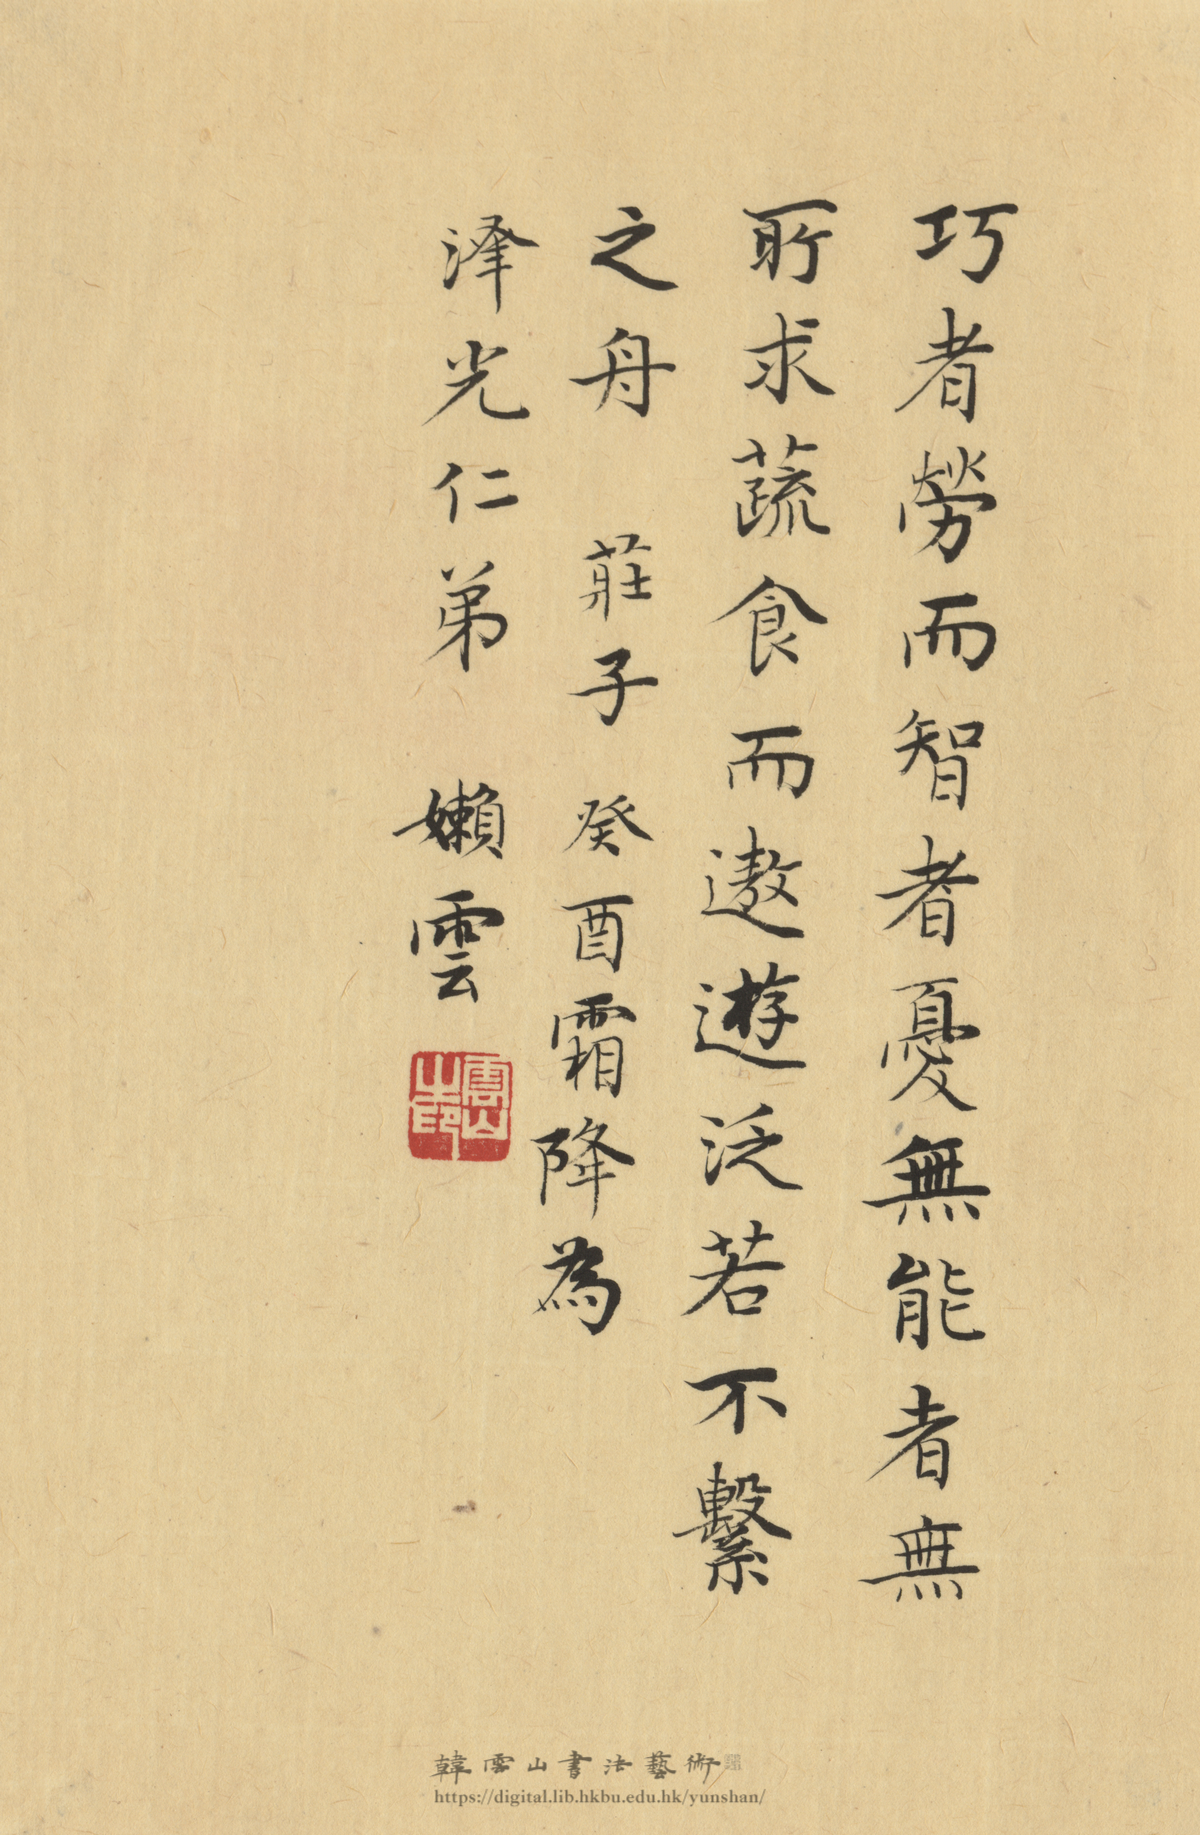 巧者勞而智者憂無能者無
所求蔬食而遨遊泛若不繫
之舟 莊子 癸酉霜降為
澤光仁弟 嬾雲
雲山之印
韓雲山書法藝術
https://digital.lib.hkbu.edu.hk/yunshan/